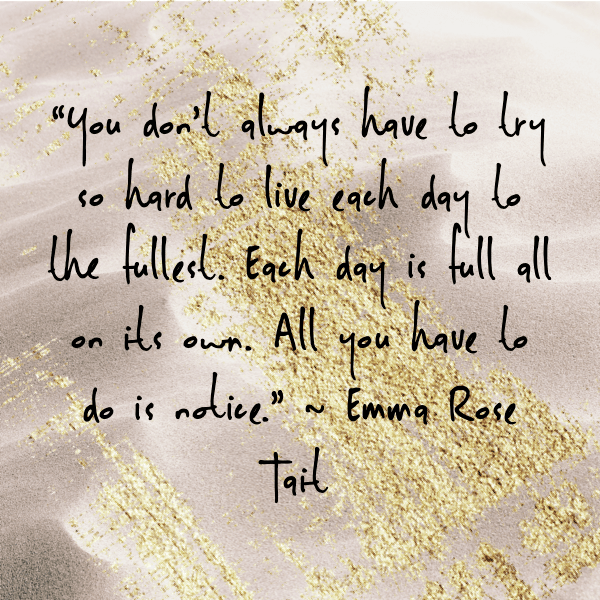 “You don’t always have to try
so hard to live each day to
the fullest. Each day is full all
on its own. All you have to
do is notice.” ~ Emma Rose
Tait